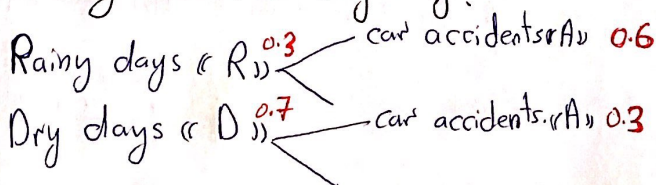 Rainy days « R » 0.3 car accidents «A» 0.6
Dry days « D » 0.7 car accidents. «A» 0.3